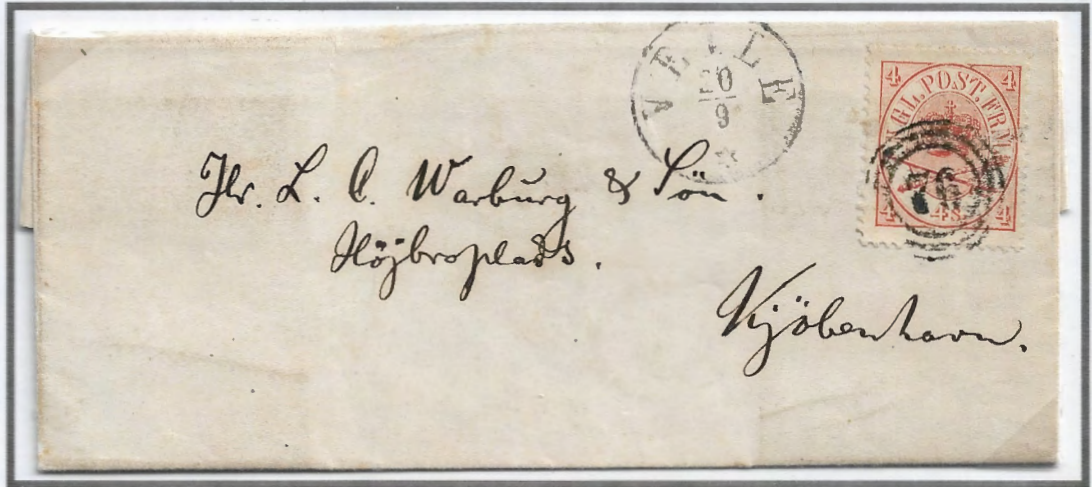 VEILE
20
9
4 4
KGL. POST. FRM.
76
4 4S 4
Hr. L. C. Warburg & Sön.
Höjbroplads.
Kjöbenhavn.